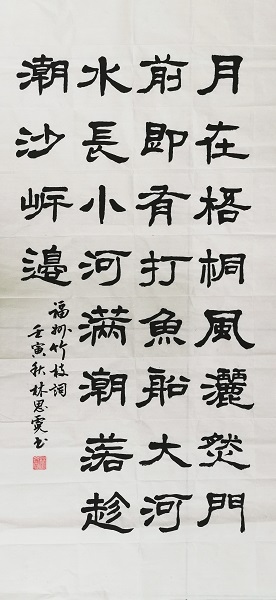 月在梧桐風灑然門
前即有打魚船大河
水長小河滿潮落趁
潮沙岍邊
福州竹枝詞
壬寅秋林思書